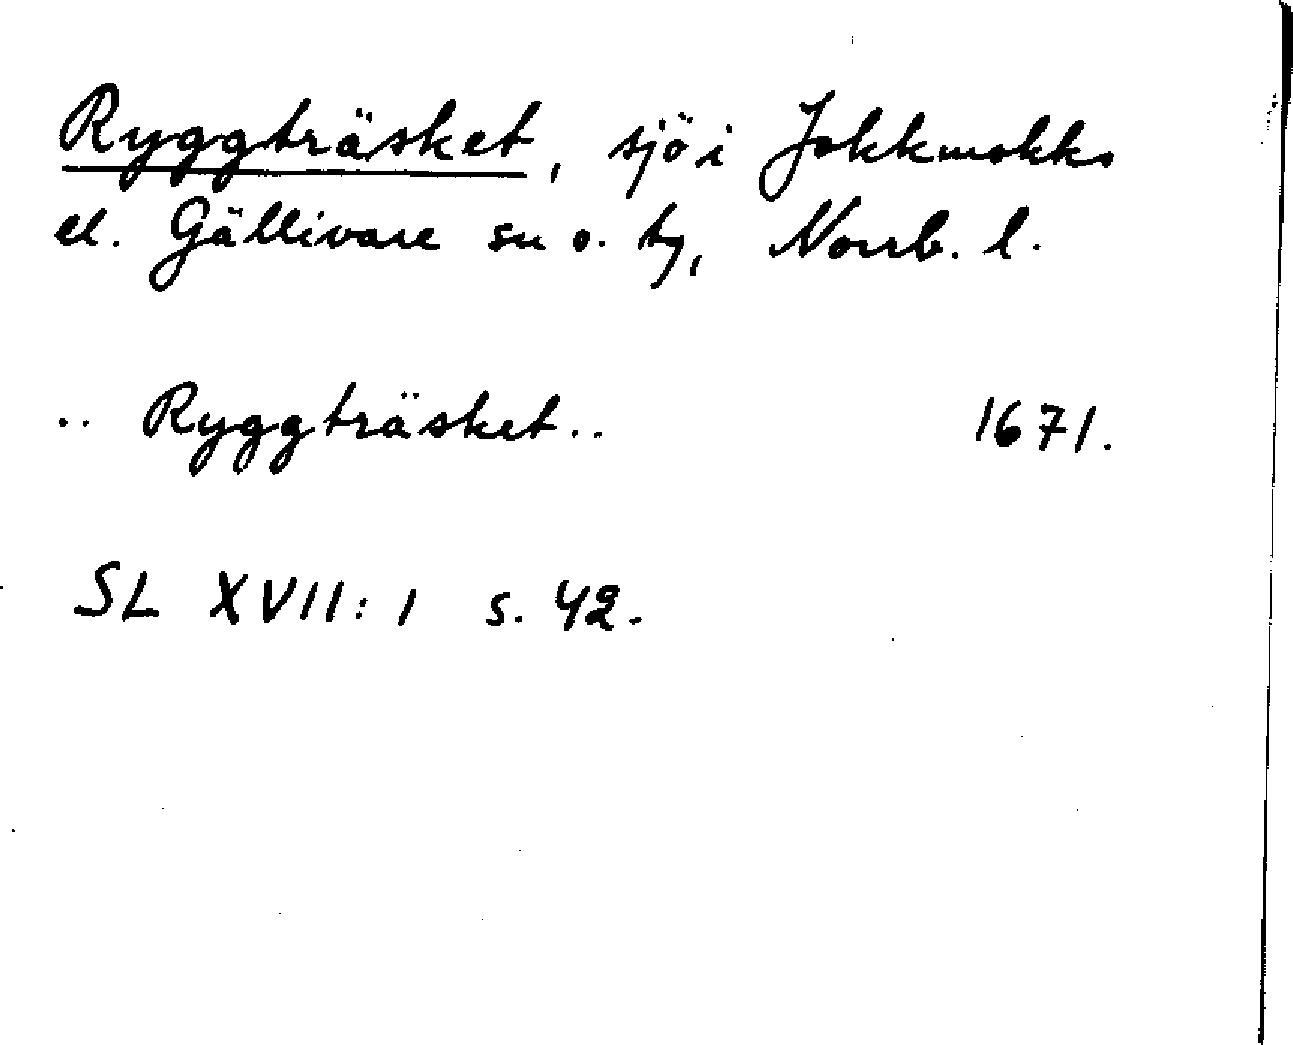 Ryggträsket, sjö i Jokkmokks
el. Gällivare sn o. tg, Norrb. l.
.. Ryggträsket..	1671.
SL XVII: 1 s. 42.